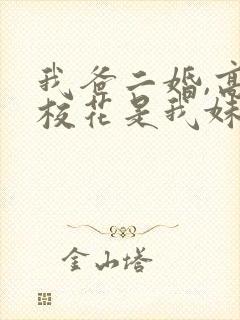 我爸二婚,高
校花是我妹
金山塔